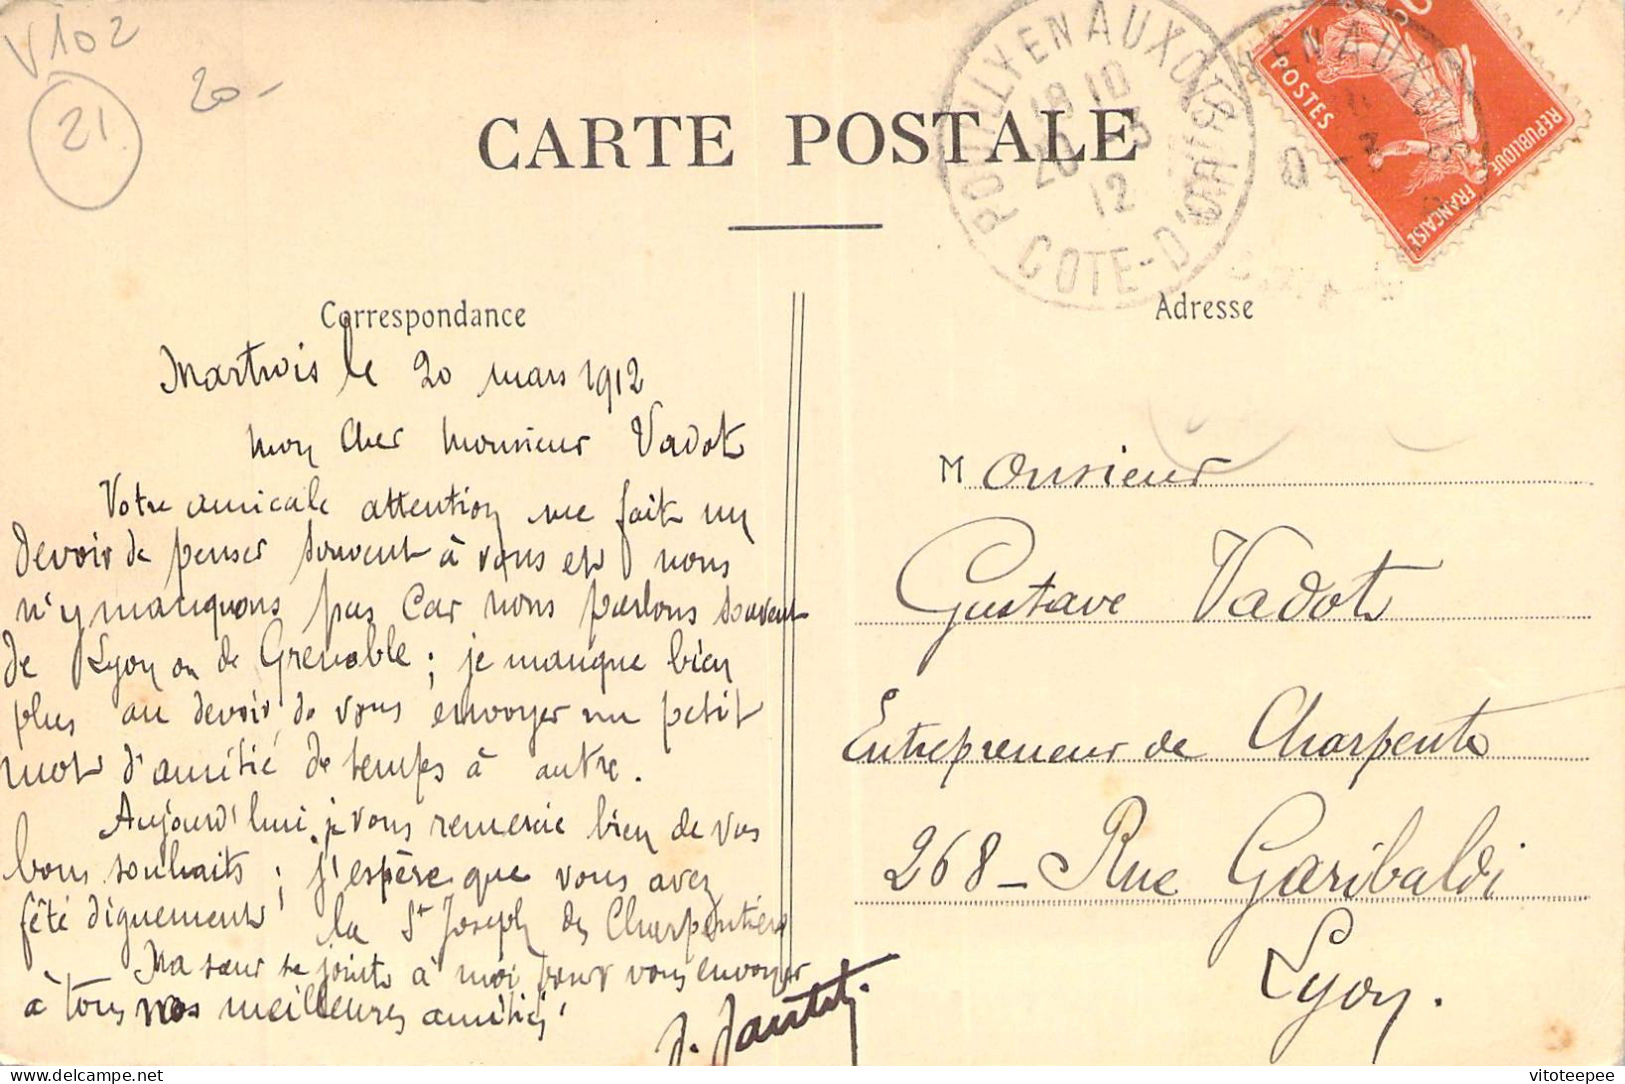 V102
21
20-
CARTE POSTALE
POUILLY EN AUXOIS
18 10
20 3
12
COTE-D'OR
POSTES
REPUBLIQUE FRANÇAISE
Correspondance
Martrois le 20 mars 1912
Mon Cher Monsieur Vadot
Votre amicale attention me fait un
devoir de penser souvent à vous et nous
n'y manquons pas car nous parlons souvent
de Lyon ou de Grenoble ; je manque bien
plus au devoir de vous envoyer un petit
mot d'amitié de temps à autre.
Aujourd'hui je vous remercie bien de vos
bons souhaits ; j'espère que vous avez
fêté dignement la St Joseph des Charpentiers
Ma sœur se joint à moi pour vous envoyer
à tous nos meilleures amitiés
Adresse
Monsieur
Gustave Vadot
Entrepreneur de Charpente
268 - Rue Garibaldi
Lyon.
vitoteepee